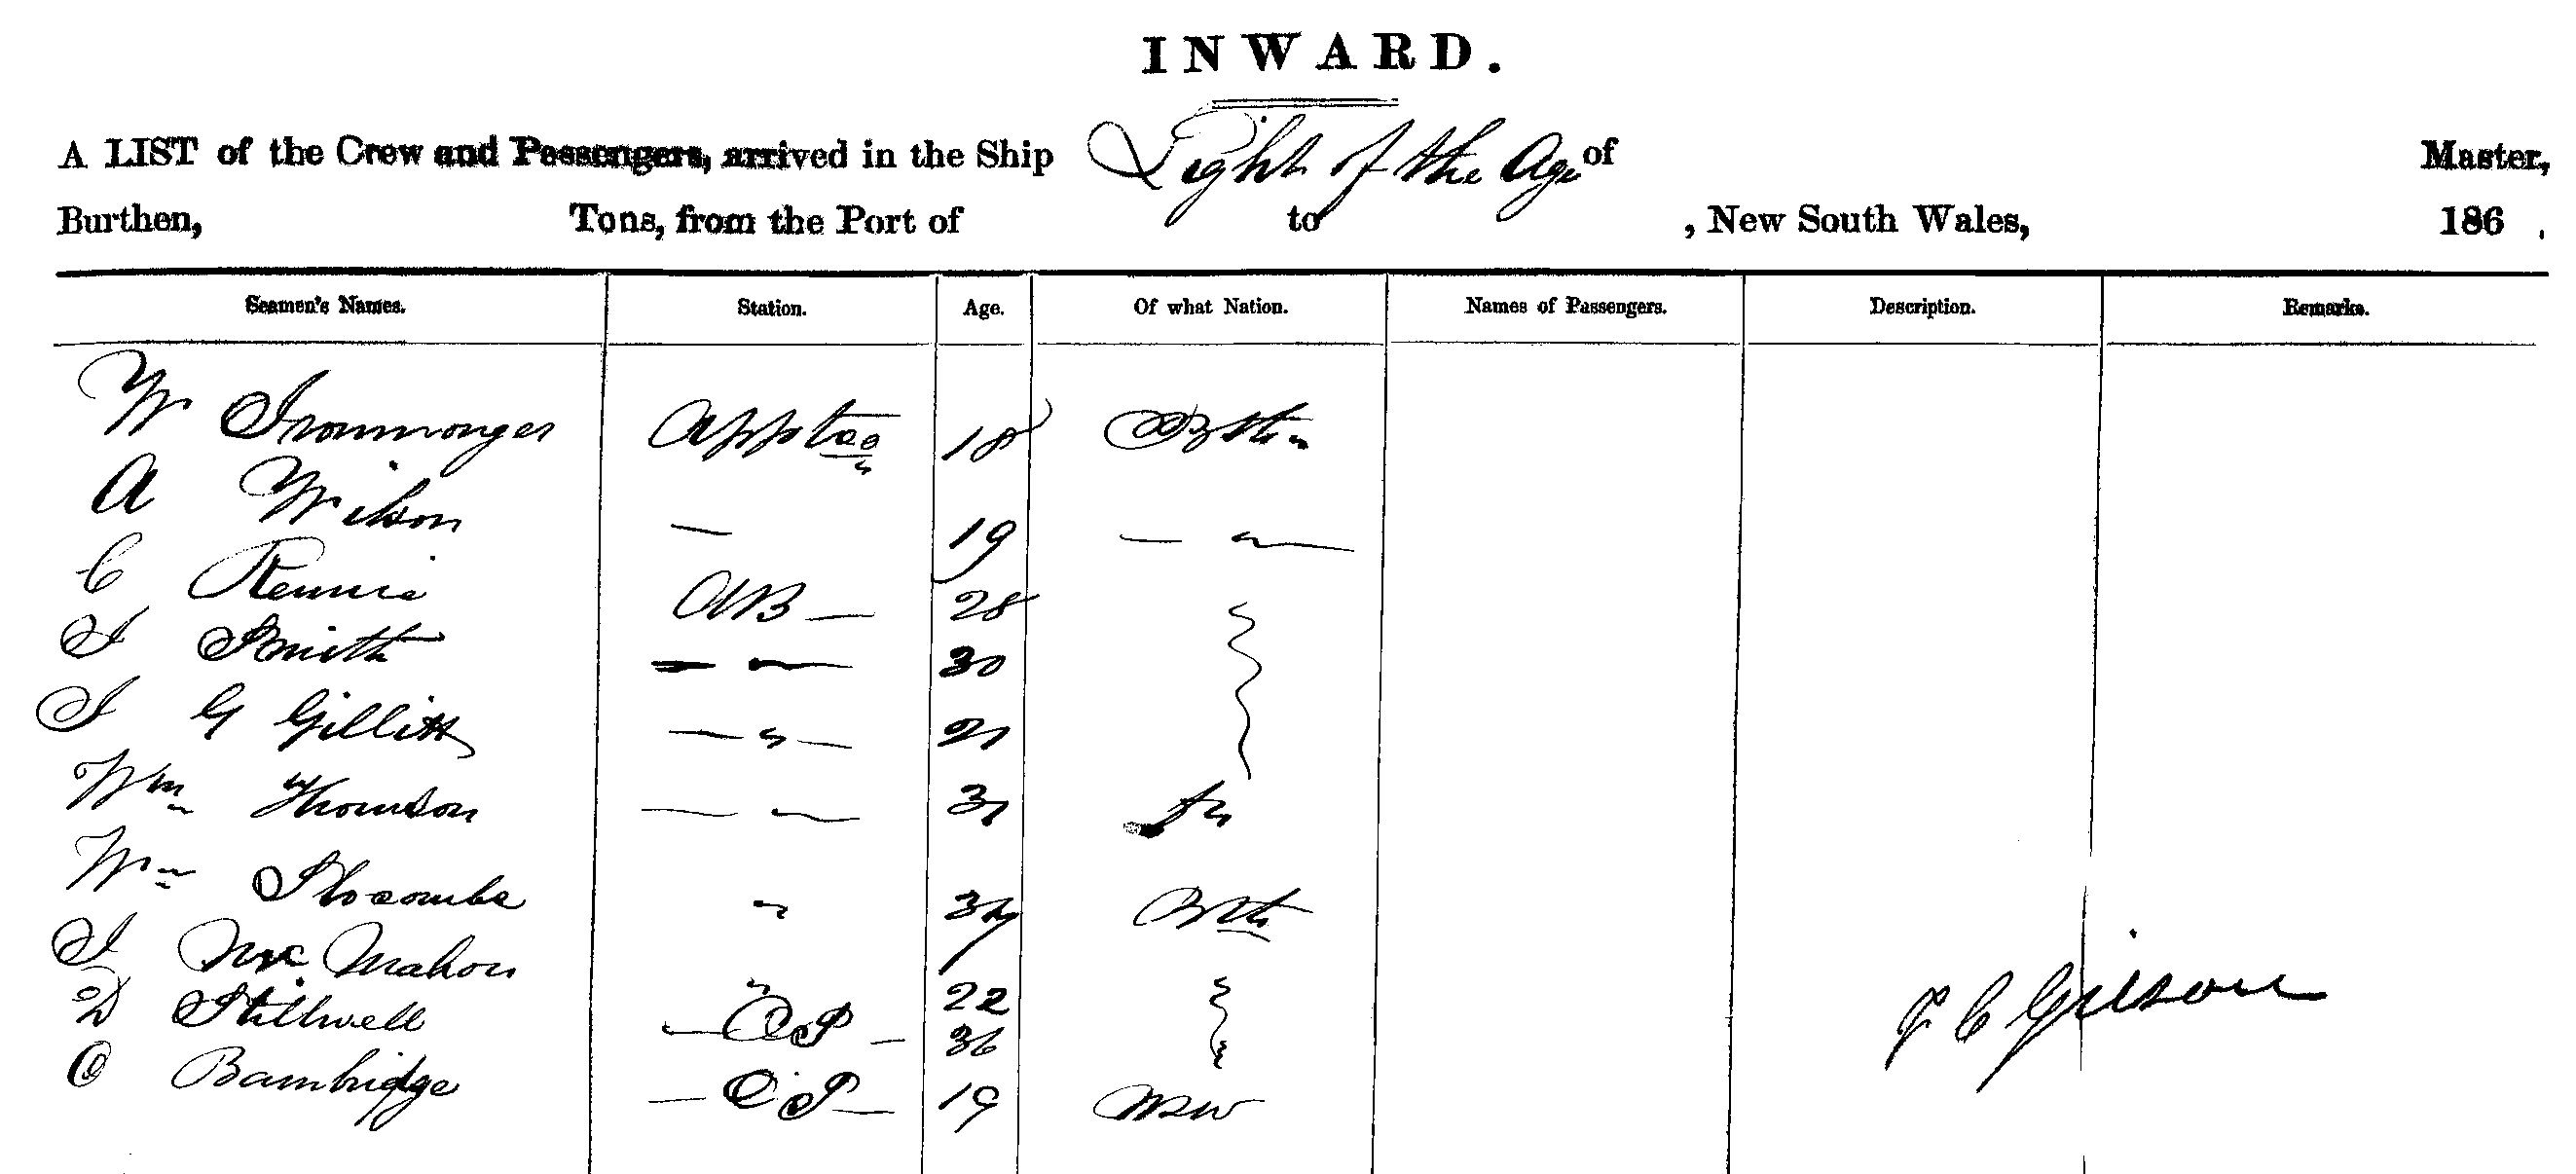 INWARD.
A LIST of the Crew and Passengers, arrived in the Ship Light of the Age of Master,
Burthen, Tons, from the Port of to , New South Wales, 186 .
Seamen's Names. Station. Age. Of what Nation. Names of Passengers. Description. Remarks.
W Ironmonger 18
A Wilson — 19 —
C Rennie AB — 28
J Smith — 30
J G Gillitt — 21
Wm Thomson — 31
Wm Slocombe
J McMahon 22
D Stillwell 36
C Bambridge 19 NSW
J C Gilson